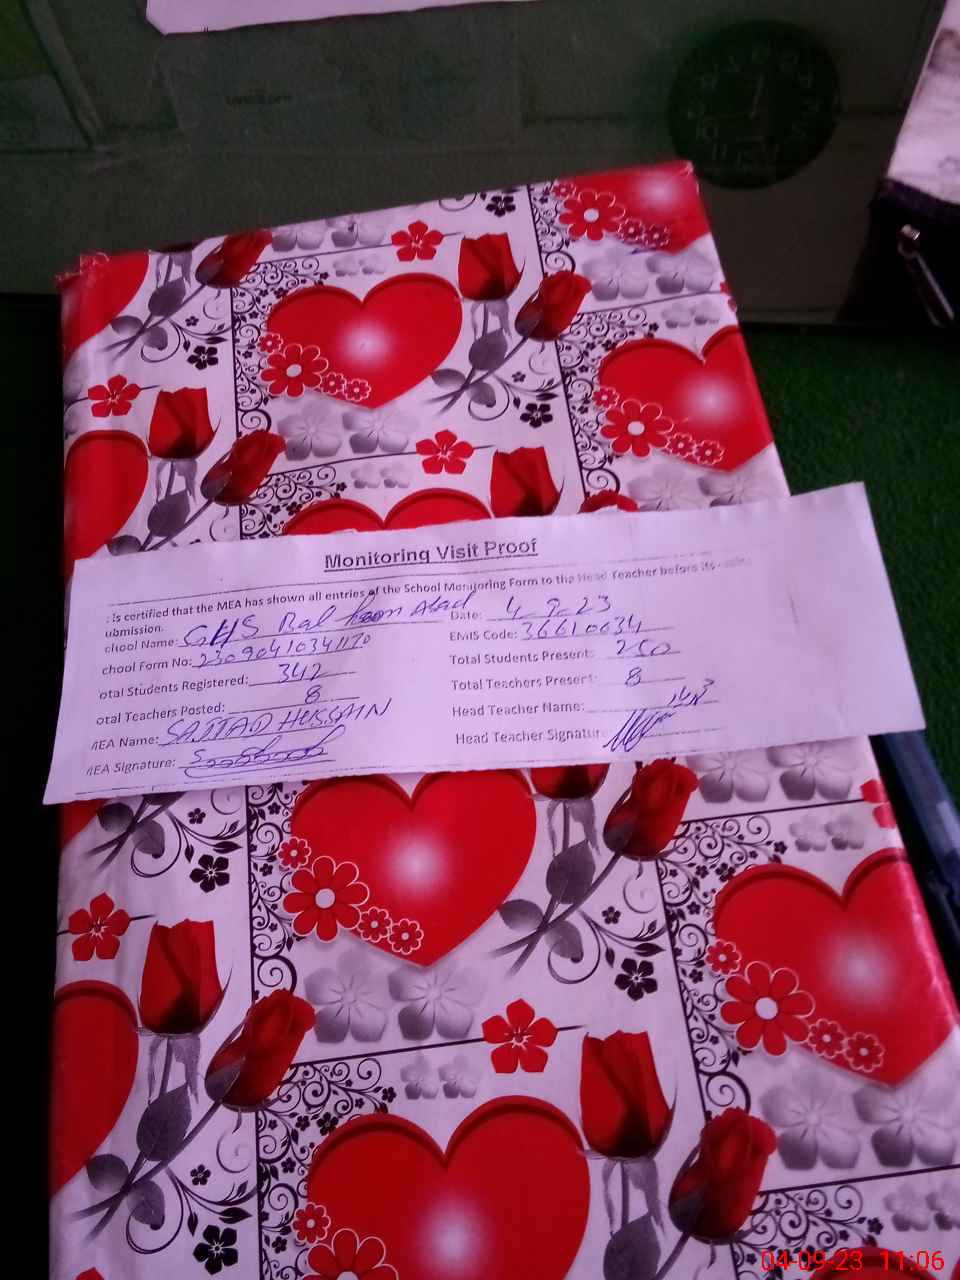 Monitoring Visit Proof
is certified that the MEA has shown all entries of the School Monitoring Form to the Head Teacher before its
ubmission.
chool Name: GHS Abad Date: 4-9-23
chool Form No: 23090410341170 EMIS Code: 36610034
otal Students Registered: 342 Total Students Present: 250
otal Teachers Posted: 8 Total Teachers Present: 8
MEA Name: SAJJAD HUSSAIN Head Teacher Name:
MEA Signature: Head Teacher Signature
04-09-23 11:06